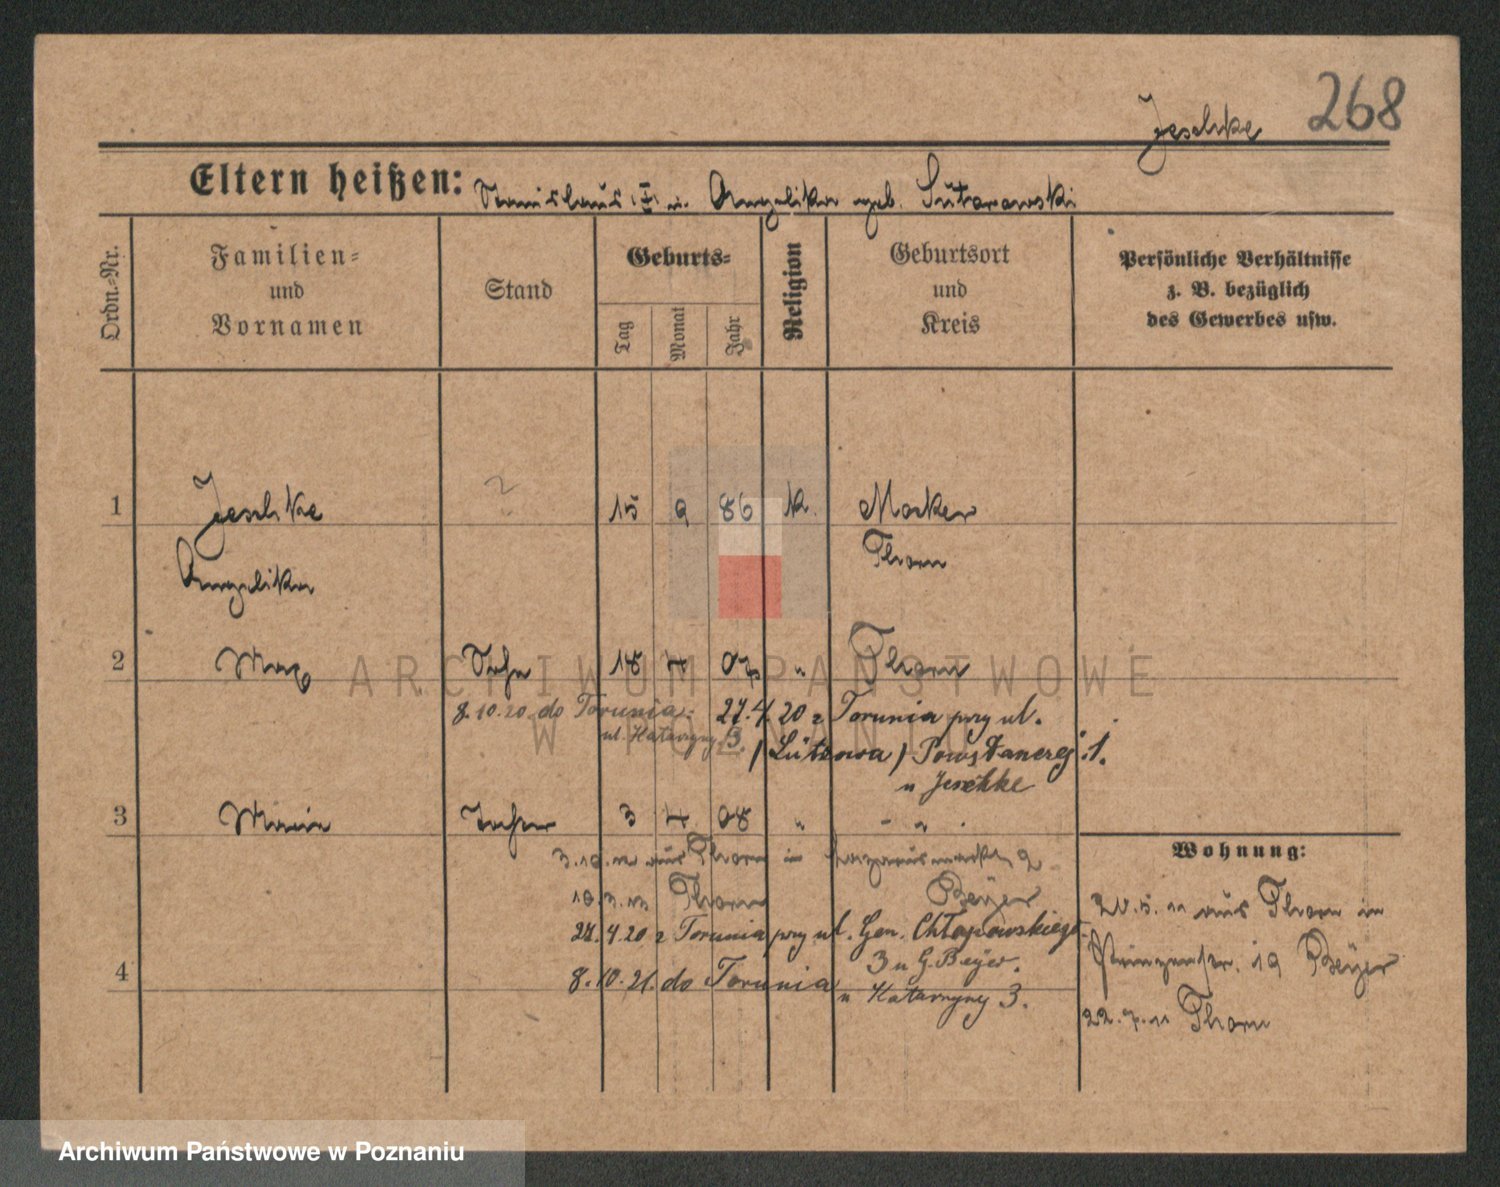 268
Jeschke
Eltern heißen: Stanislaus u. Angelika geb. Sutarowski
Ordn.-Nr.
Familien-
und
Vornamen
Stand
Geburts-
Tag
Monat
Jahr
Religion
Geburtsort
und
Kreis
Persönliche Verhältnisse
z. B. bezüglich
des Gewerbes usw.
1 Jeschke 15 9 86 k. Mocker
Angelika Thorn
2 Max Sohn 18 7 07 " Thorn
8.10.20 do Torunia. 27.4.20 z Torunia przy ul.
ul. Katarzyny 3.
/Lützowa/ Powstancrej 1.
u Jeschke
3 Maria Tochter 3 7 08 " - " -
3.10.12 aus Thorn in 2
10.3.13 Thorn Beyer
27.4.20 z Torunia przy ul. Gen. Chłapowskiego
3 u G. Beyer.
4
8.10.21. do Torunia u Katarzyny 3.
Wohnung:
20.5.11 aus Thorn in
Prinzenstr. 19 Beyer
22.7.11 Thorn
ARCHIWUM PAŃSTWOWE
W POZNANIU
Archiwum Państwowe w Poznaniu